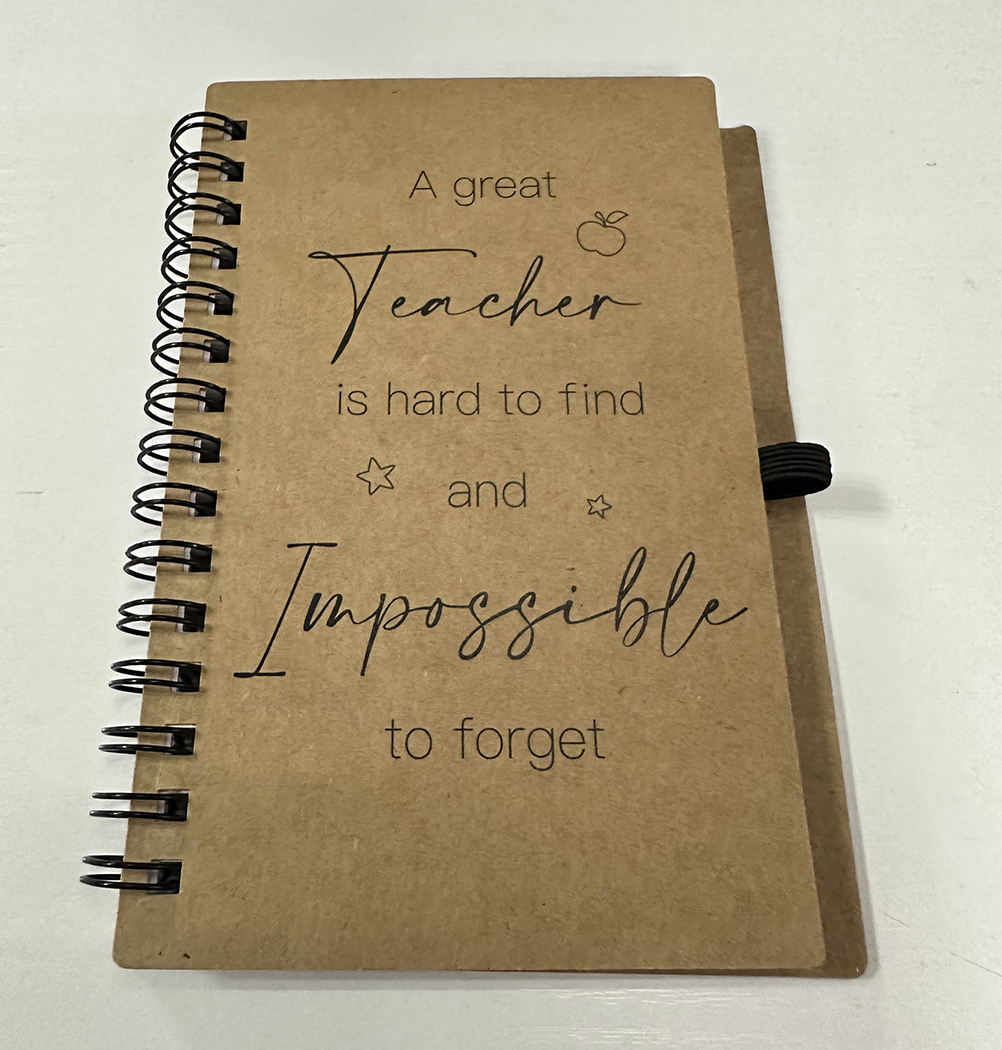 A great
Teacher
is hard to find
and
Impossible
to forget